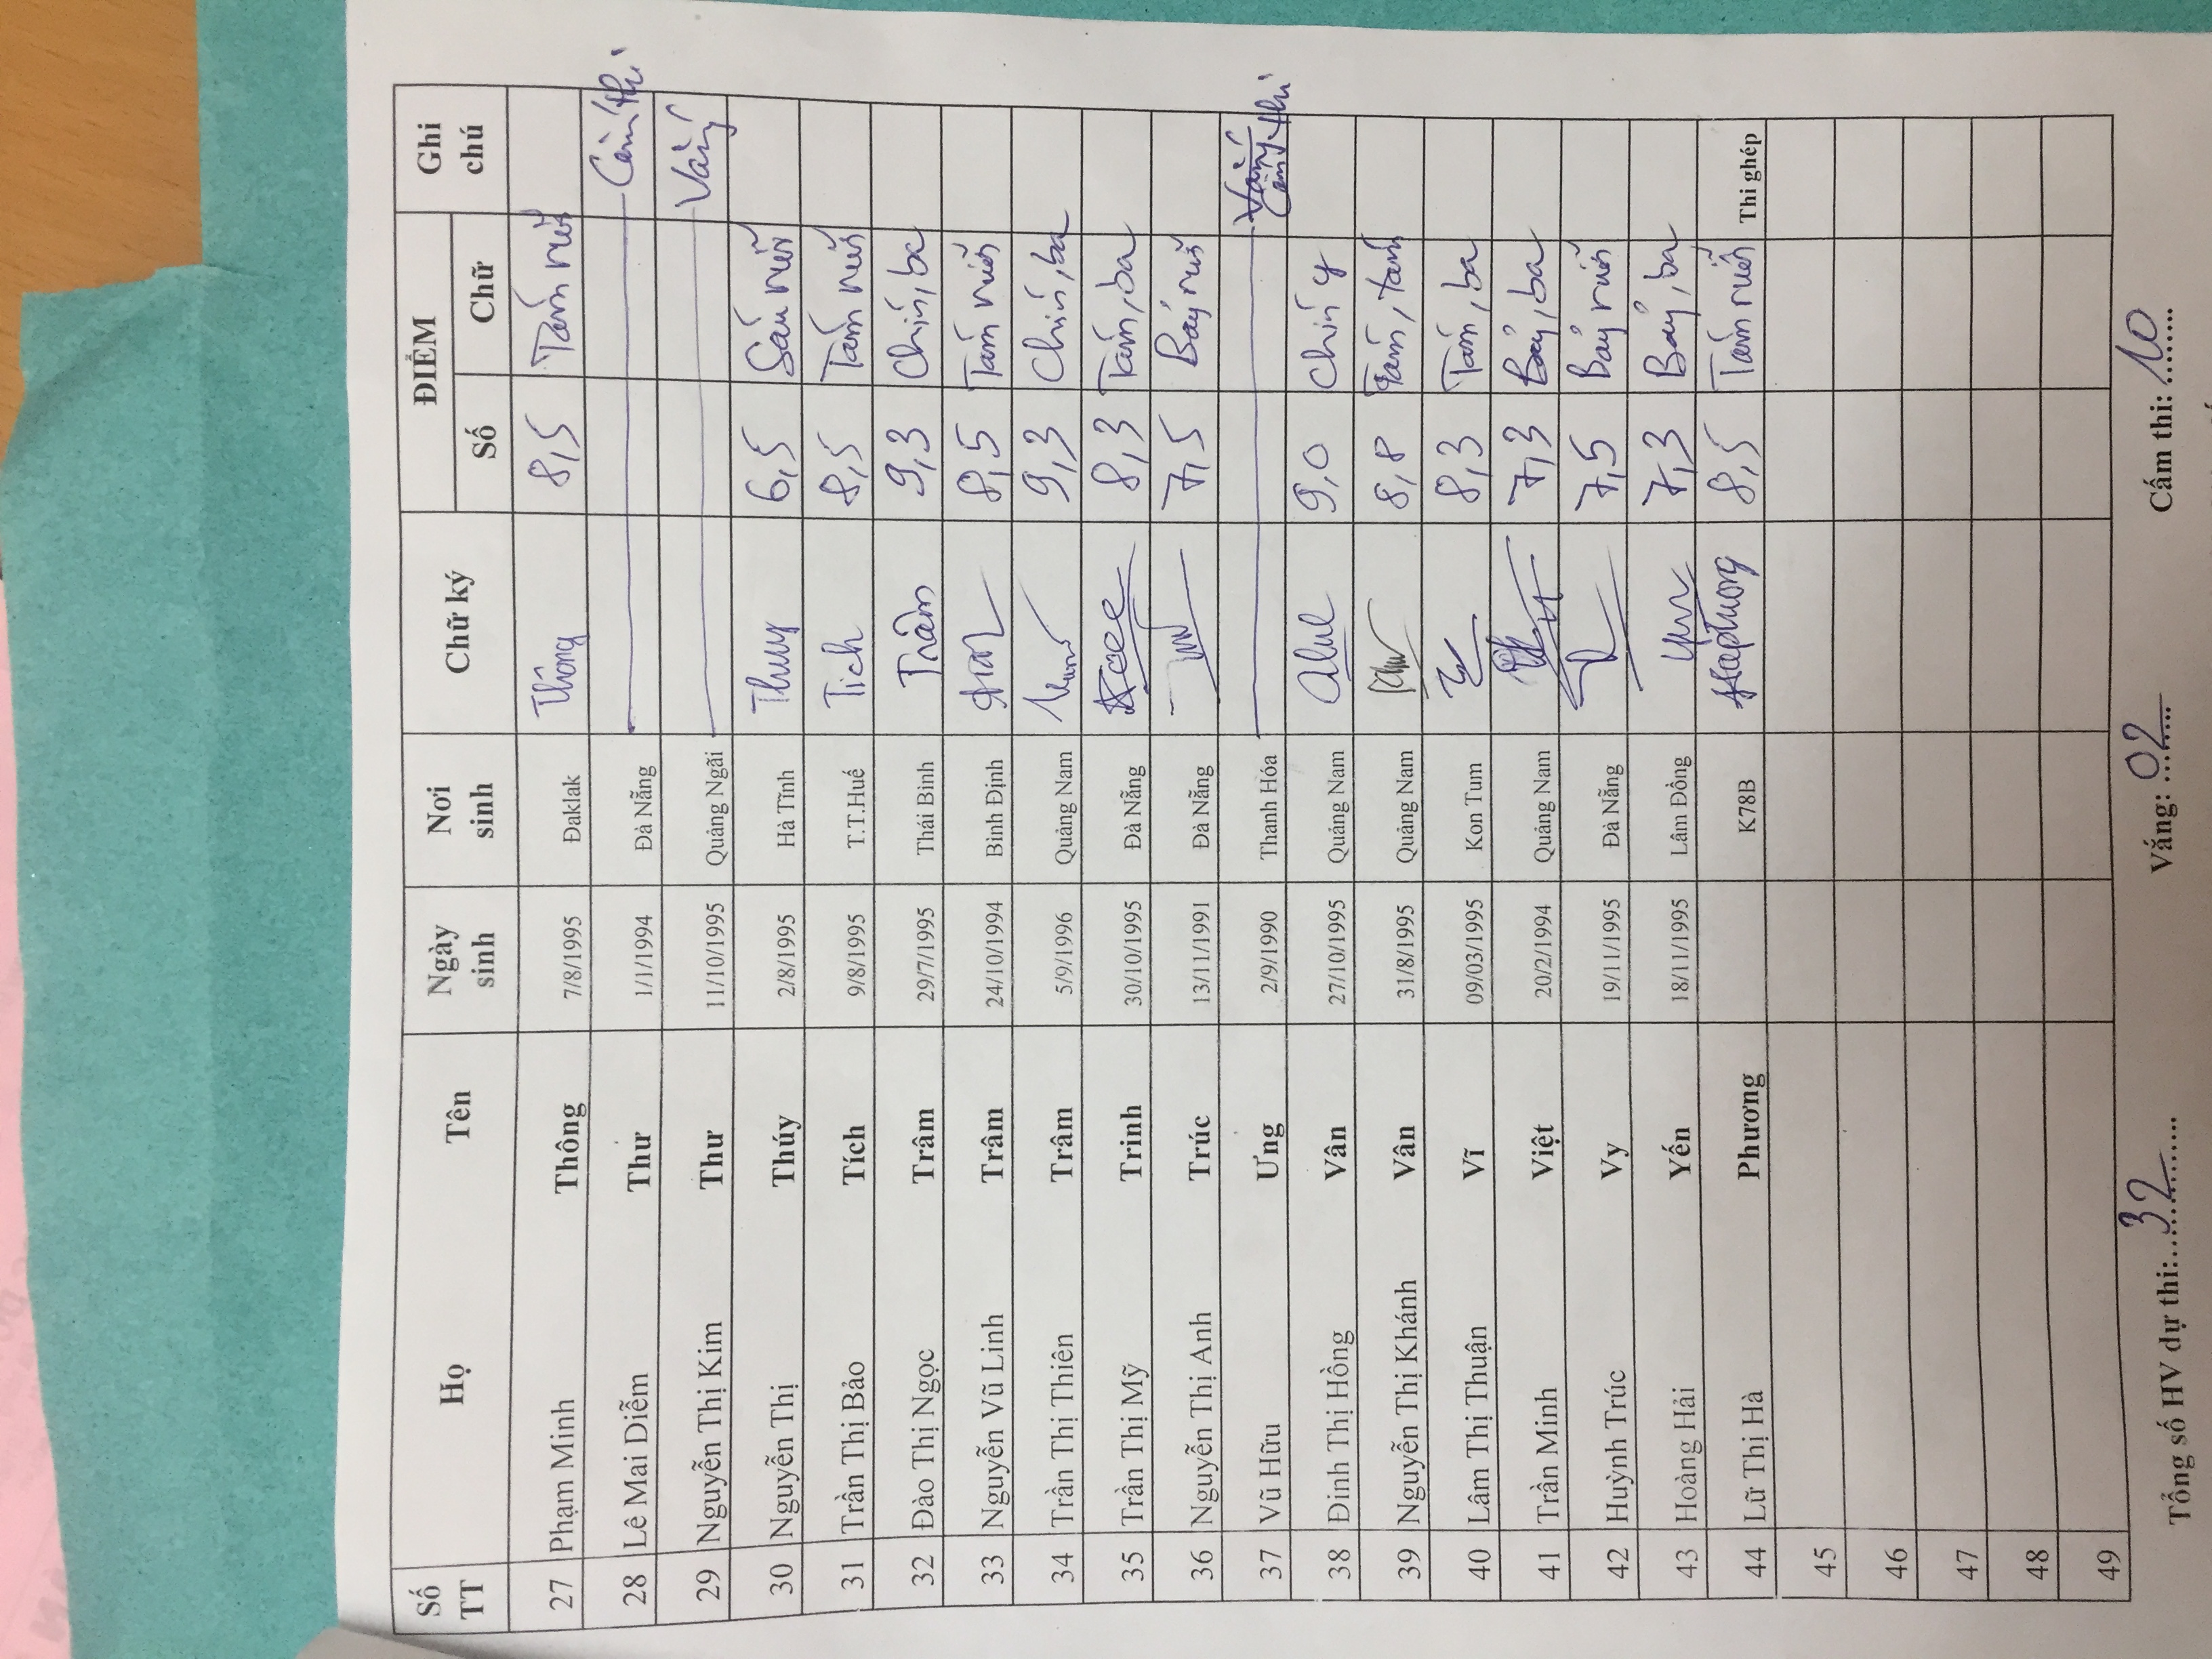 Số TT Họ Tên Ngày sinh Nơi sinh Chữ ký ĐIỂM Ghi chú
Số Chữ
27 Phạm Minh Thông 7/8/1995 Đaklak Thông 8,5 Tám rưỡi
28 Lê Mai Diễm Thư 1/1/1994 Đà Nẵng Cấm thi
29 Nguyễn Thị Kim Thư 11/10/1995 Quảng Ngãi Vắng
30 Nguyễn Thị Thúy 2/8/1995 Hà Tĩnh Thuy 6,5 Sáu rưỡi
31 Trần Thị Bảo Tích 9/8/1995 T.T.Huế Tich 8,5 Tám rưỡi
32 Đào Thị Ngọc Trâm 29/7/1995 Thái Bình Trâm 9,3 Chín, ba
33 Nguyễn Vũ Linh Trâm 24/10/1994 Bình Định 8,5 Tám rưỡi
34 Trần Thị Thiên Trâm 5/9/1996 Quảng Nam 9,3 Chín, ba
35 Trần Thị Mỹ Trinh 30/10/1995 Đà Nẵng 8,3 Tám, ba
36 Nguyễn Thị Anh Trúc 13/11/1991 Đà Nẵng 7,5 Bảy rưỡi
37 Vũ Hữu Ưng 2/9/1990 Thanh Hóa Vắng Cấm thi
38 Đinh Thị Hồng Vân 27/10/1995 Quảng Nam 9,0 Chín
39 Nguyễn Thị Khánh Vân 31/8/1995 Quảng Nam 8,8 Tám, tám
40 Lâm Thị Thuận Vĩ 09/03/1995 Kon Tum 8,3 Tám, ba
41 Trần Minh Việt 20/2/1994 Quảng Nam 7,3 Bảy, ba
42 Huỳnh Trúc Vy 19/11/1995 Đà Nẵng 7,5 Bảy rưỡi
43 Hoàng Hải Yến 18/11/1995 Lâm Đồng 7,3 Bảy, ba
44 Lữ Thị Hà Phương K78B Haphuong 8,5 Tám rưỡi Thi ghép
45
46
47
48
49
Tổng số HV dự thi:....32....... Vắng: ....02..... Cấm thi: ....10.....